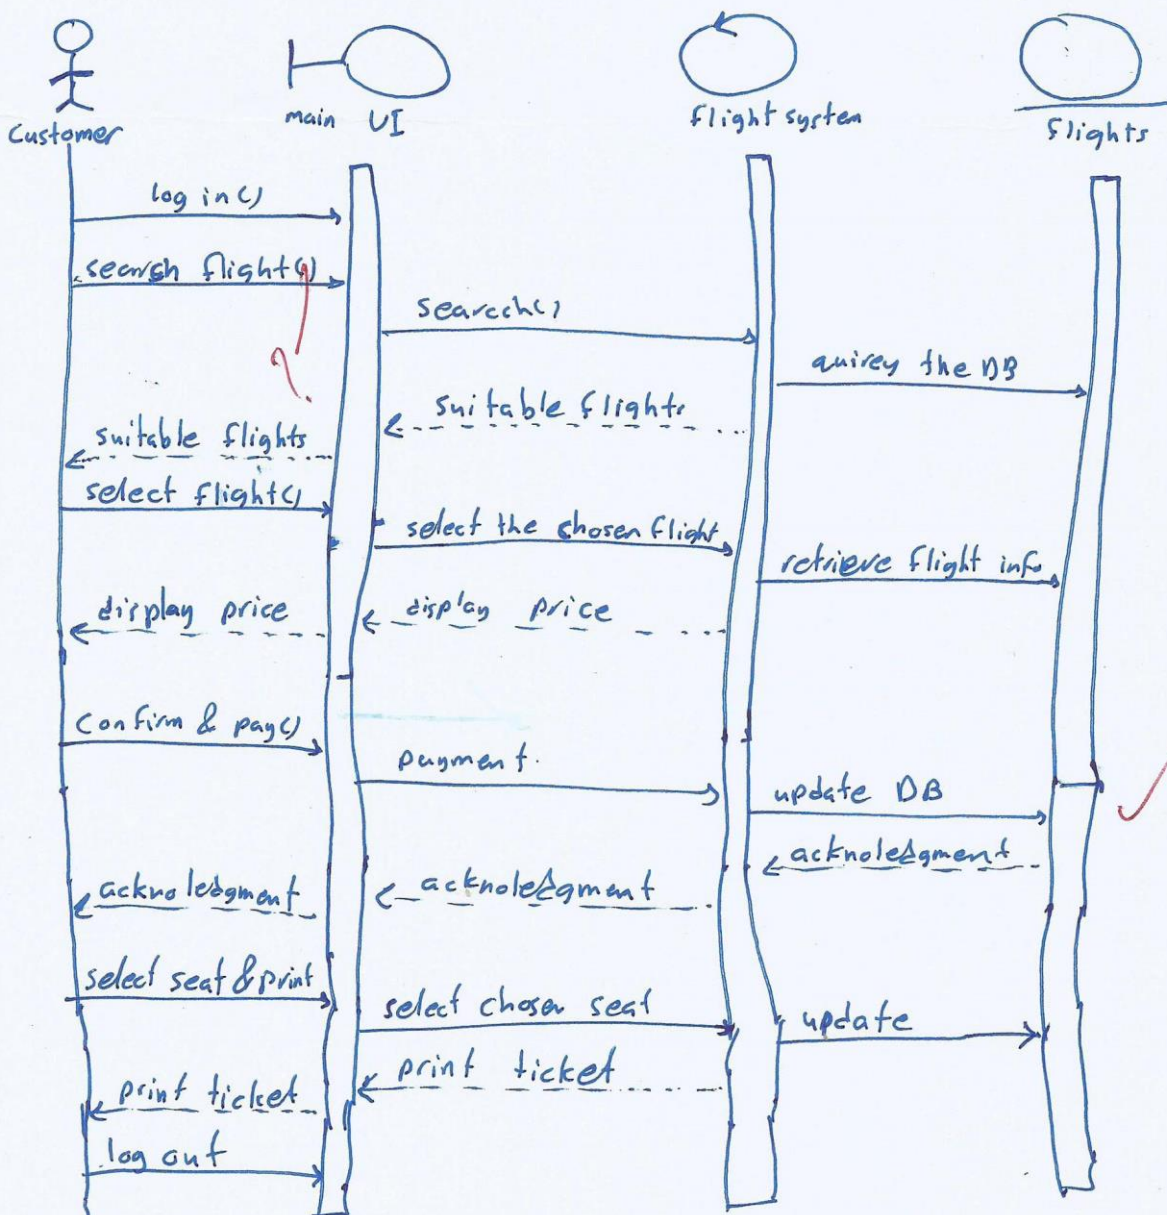 Customer
main UI
flight system
flights
log in()
search flight()
search()
quirey the DB
suitable flights
suitable flights
select flight()
select the chosen flight
retrieve flight info
display price
display price
Confirm & pay()
payment.
update DB
acknoledgment
acknoledgment
acknoledgment
select seat & print
select chosen seat
update
print ticket
print ticket
log out